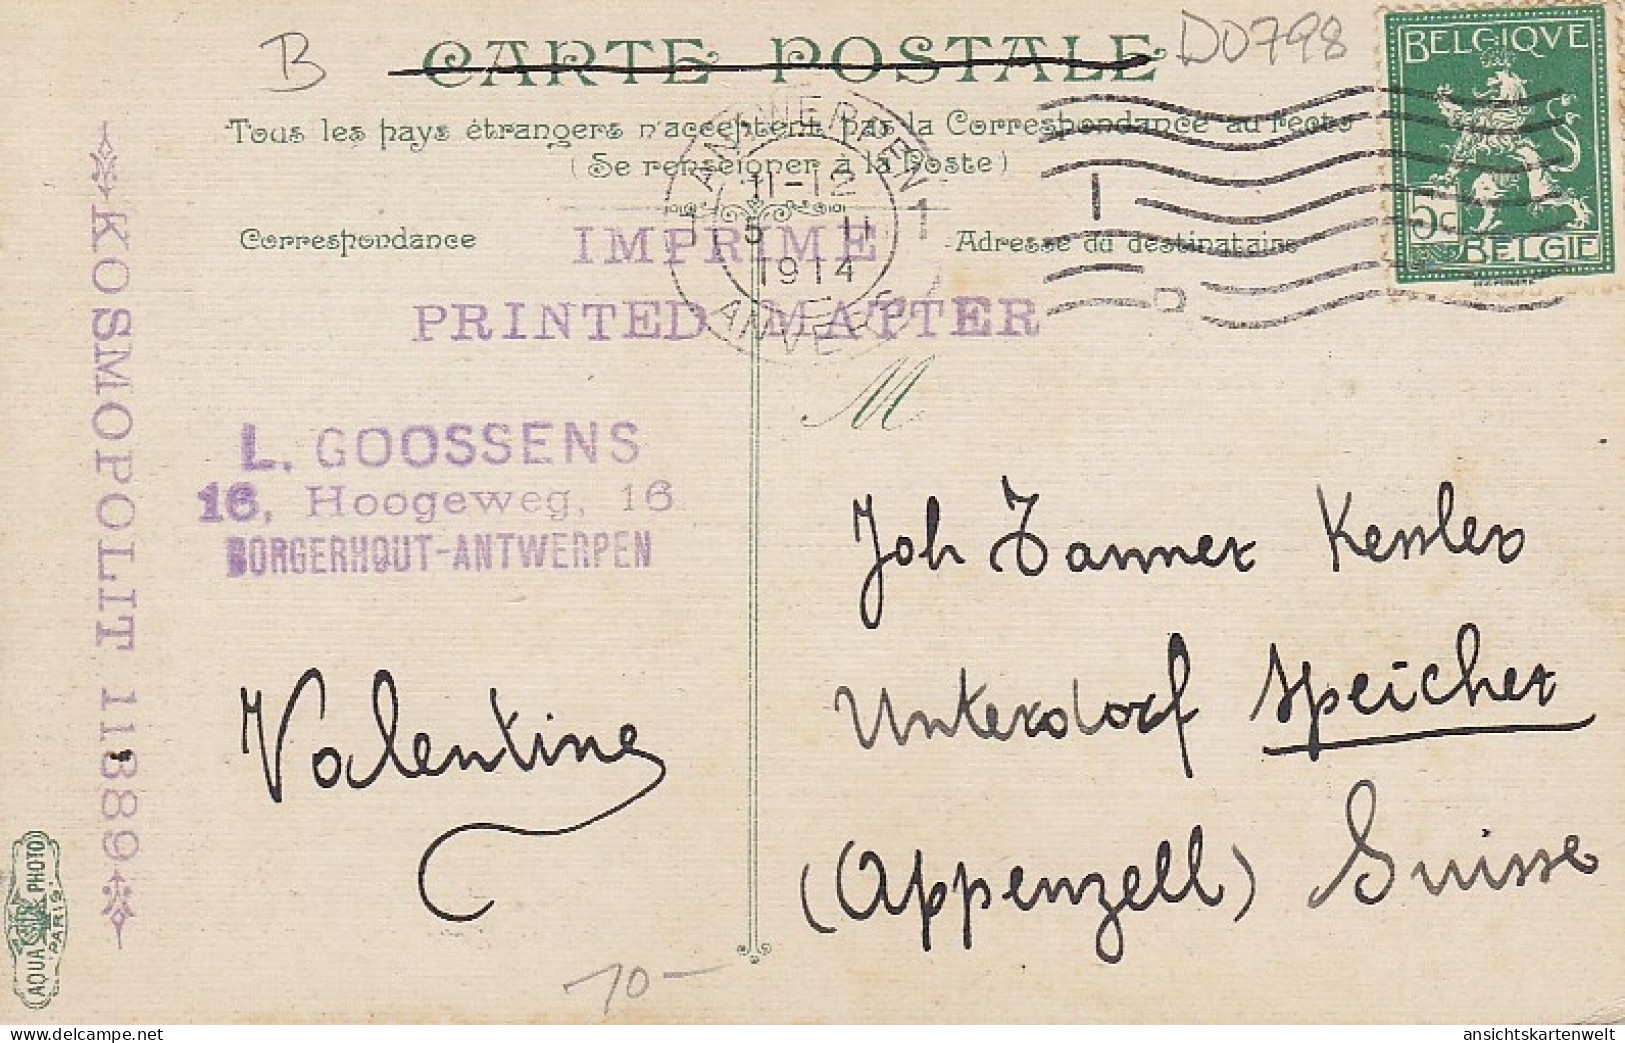 B
CARTE POSTALE
D0798
BELGIQVE
5c
BELGIE
Tous les pays étrangers n'acceptent pas la Correspondance au recto
(Se renseigner à la Poste)
Correspondance
Adresse du destinataire
ANTWERPEN
1 1
11-12
5 II
1914
ANVERS
IMPRIME
PRINTED MATTER
M
KOSMOPOLIT 11889
L. GOOSSENS
16, Hoogeweg, 16
BORGERHOUT-ANTWERPEN
Valentine
Joh Tanner Kessler
Unterdorf Speicher
(Appenzell) Suisse
AQUA PHOTO
PARIS
10-
delcampe.net
ansichtskartenwelt